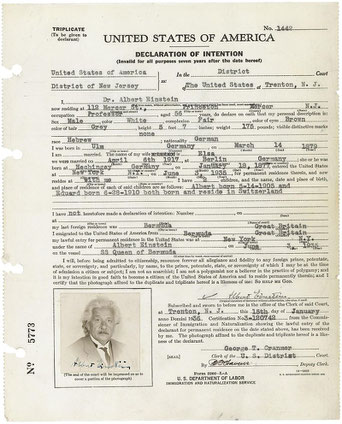 TRIPLICATE
(To be given to declarant)
No. 1442
UNITED STATES OF AMERICA
DECLARATION OF INTENTION
(Invalid for all purposes seven years after the date hereof)
United States of America
District of New Jersey
ss:
In the District Court
of The United States at Trenton, N. J.
Dr. Albert Einstein
now residing at 112 Mercer St., Princeton Mercer N.J.
occupation Professor, aged 56 years, do declare on oath that my personal description is:
Sex Male, color White, complexion Fair, color of eyes Brown
color of hair Grey, height 5 feet 7 inches; weight 175 pounds; visible distinctive marks
none
race Hebrew; nationality German
I was born in Ulm Germany, on March 14 1879
I am married. The name of my wife is Elsa
we were married on April 6th 1917, at Berlin Germany; she or he was
born at Hechingen Germany, on January 18, 1877, entered the United States
at New York N.Y., on June 3 1935, for permanent residence therein, and now
resides at with me. I have 2 children, and the name, date and place of birth,
and place of residence of each of said children are as follows: Albert born 5-14-1905 and
Eduard born 6-28-1910 both born and reside in Switzerland
I have not heretofore made a declaration of intention: Number, on
at
my last foreign residence was Bermuda Great Britain
I emigrated to the United States of America from Bermuda Great Britain
my lawful entry for permanent residence in the United States was at New York N.Y.
under the name of Albert Einstein, on June 3, 1935
on the vessel SS Queen of Bermuda
I will, before being admitted to citizenship, renounce forever all allegiance and fidelity to any foreign prince, potentate,
state, or sovereignty, and particularly, by name, to the prince, potentate, state, or sovereignty of which I may be at the time
of admission a citizen or subject; I am not an anarchist; I am not a polygamist nor a believer in the practice of polygamy; and
it is my intention in good faith to become a citizen of the United States of America and to permanently reside therein; and I
certify that the photograph affixed to the duplicate and triplicate hereof is a likeness of me: SO HELP ME GOD.
Albert Einstein
Subscribed and sworn to before me in the office of the Clerk of said Court,
at Trenton, N. J. this 15th day of January
anno Domini 1936. Certification No. 3-120742 from the Commissioner
of Immigration and Naturalization showing the lawful entry of the
declarant for permanent residence on the date stated above, has been received
by me. The photograph affixed to the duplicate and triplicate hereof is a likeness
of the declarant.
George T. Cranmer
Clerk of the U. S. District Court.
Deputy Clerk.
U. S. DEPARTMENT OF LABOR
IMMIGRATION AND NATURALIZATION SERVICE
Albert Einstein
No 5773